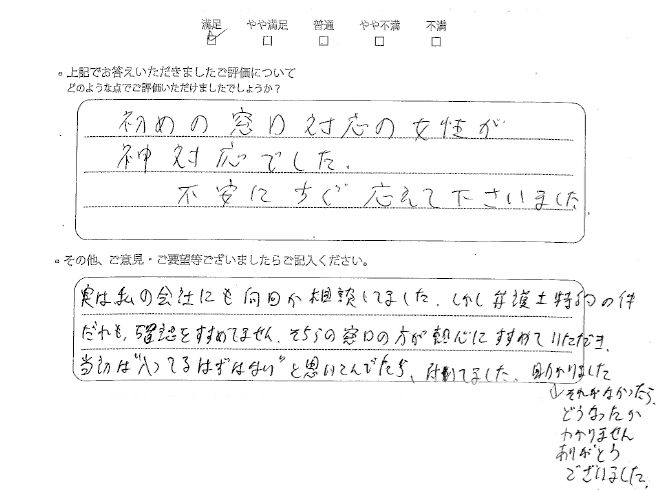 満足 やや満足 普通 やや不満 不満
上記でお答えいただきましたご評価について
どのような点でご評価いただけましたでしょうか?
初めの窓口対応の女性が
神対応でした.
不安にすぐ応えて下さいました
その他、ご意見・ご要望等ございましたらご記入ください。
実は私の会社にも何回か相談してました. しかし弁護士特約の件
だれも, 確認をすすめてません. そちらの窓口の方が熱心にすすめていただき,
当初は"入ってるはずはない"と思いこんでたら、付いてました. 助かりました
↓それがなかったら,
どうなったか
わかりません
ありがとう
ございました.